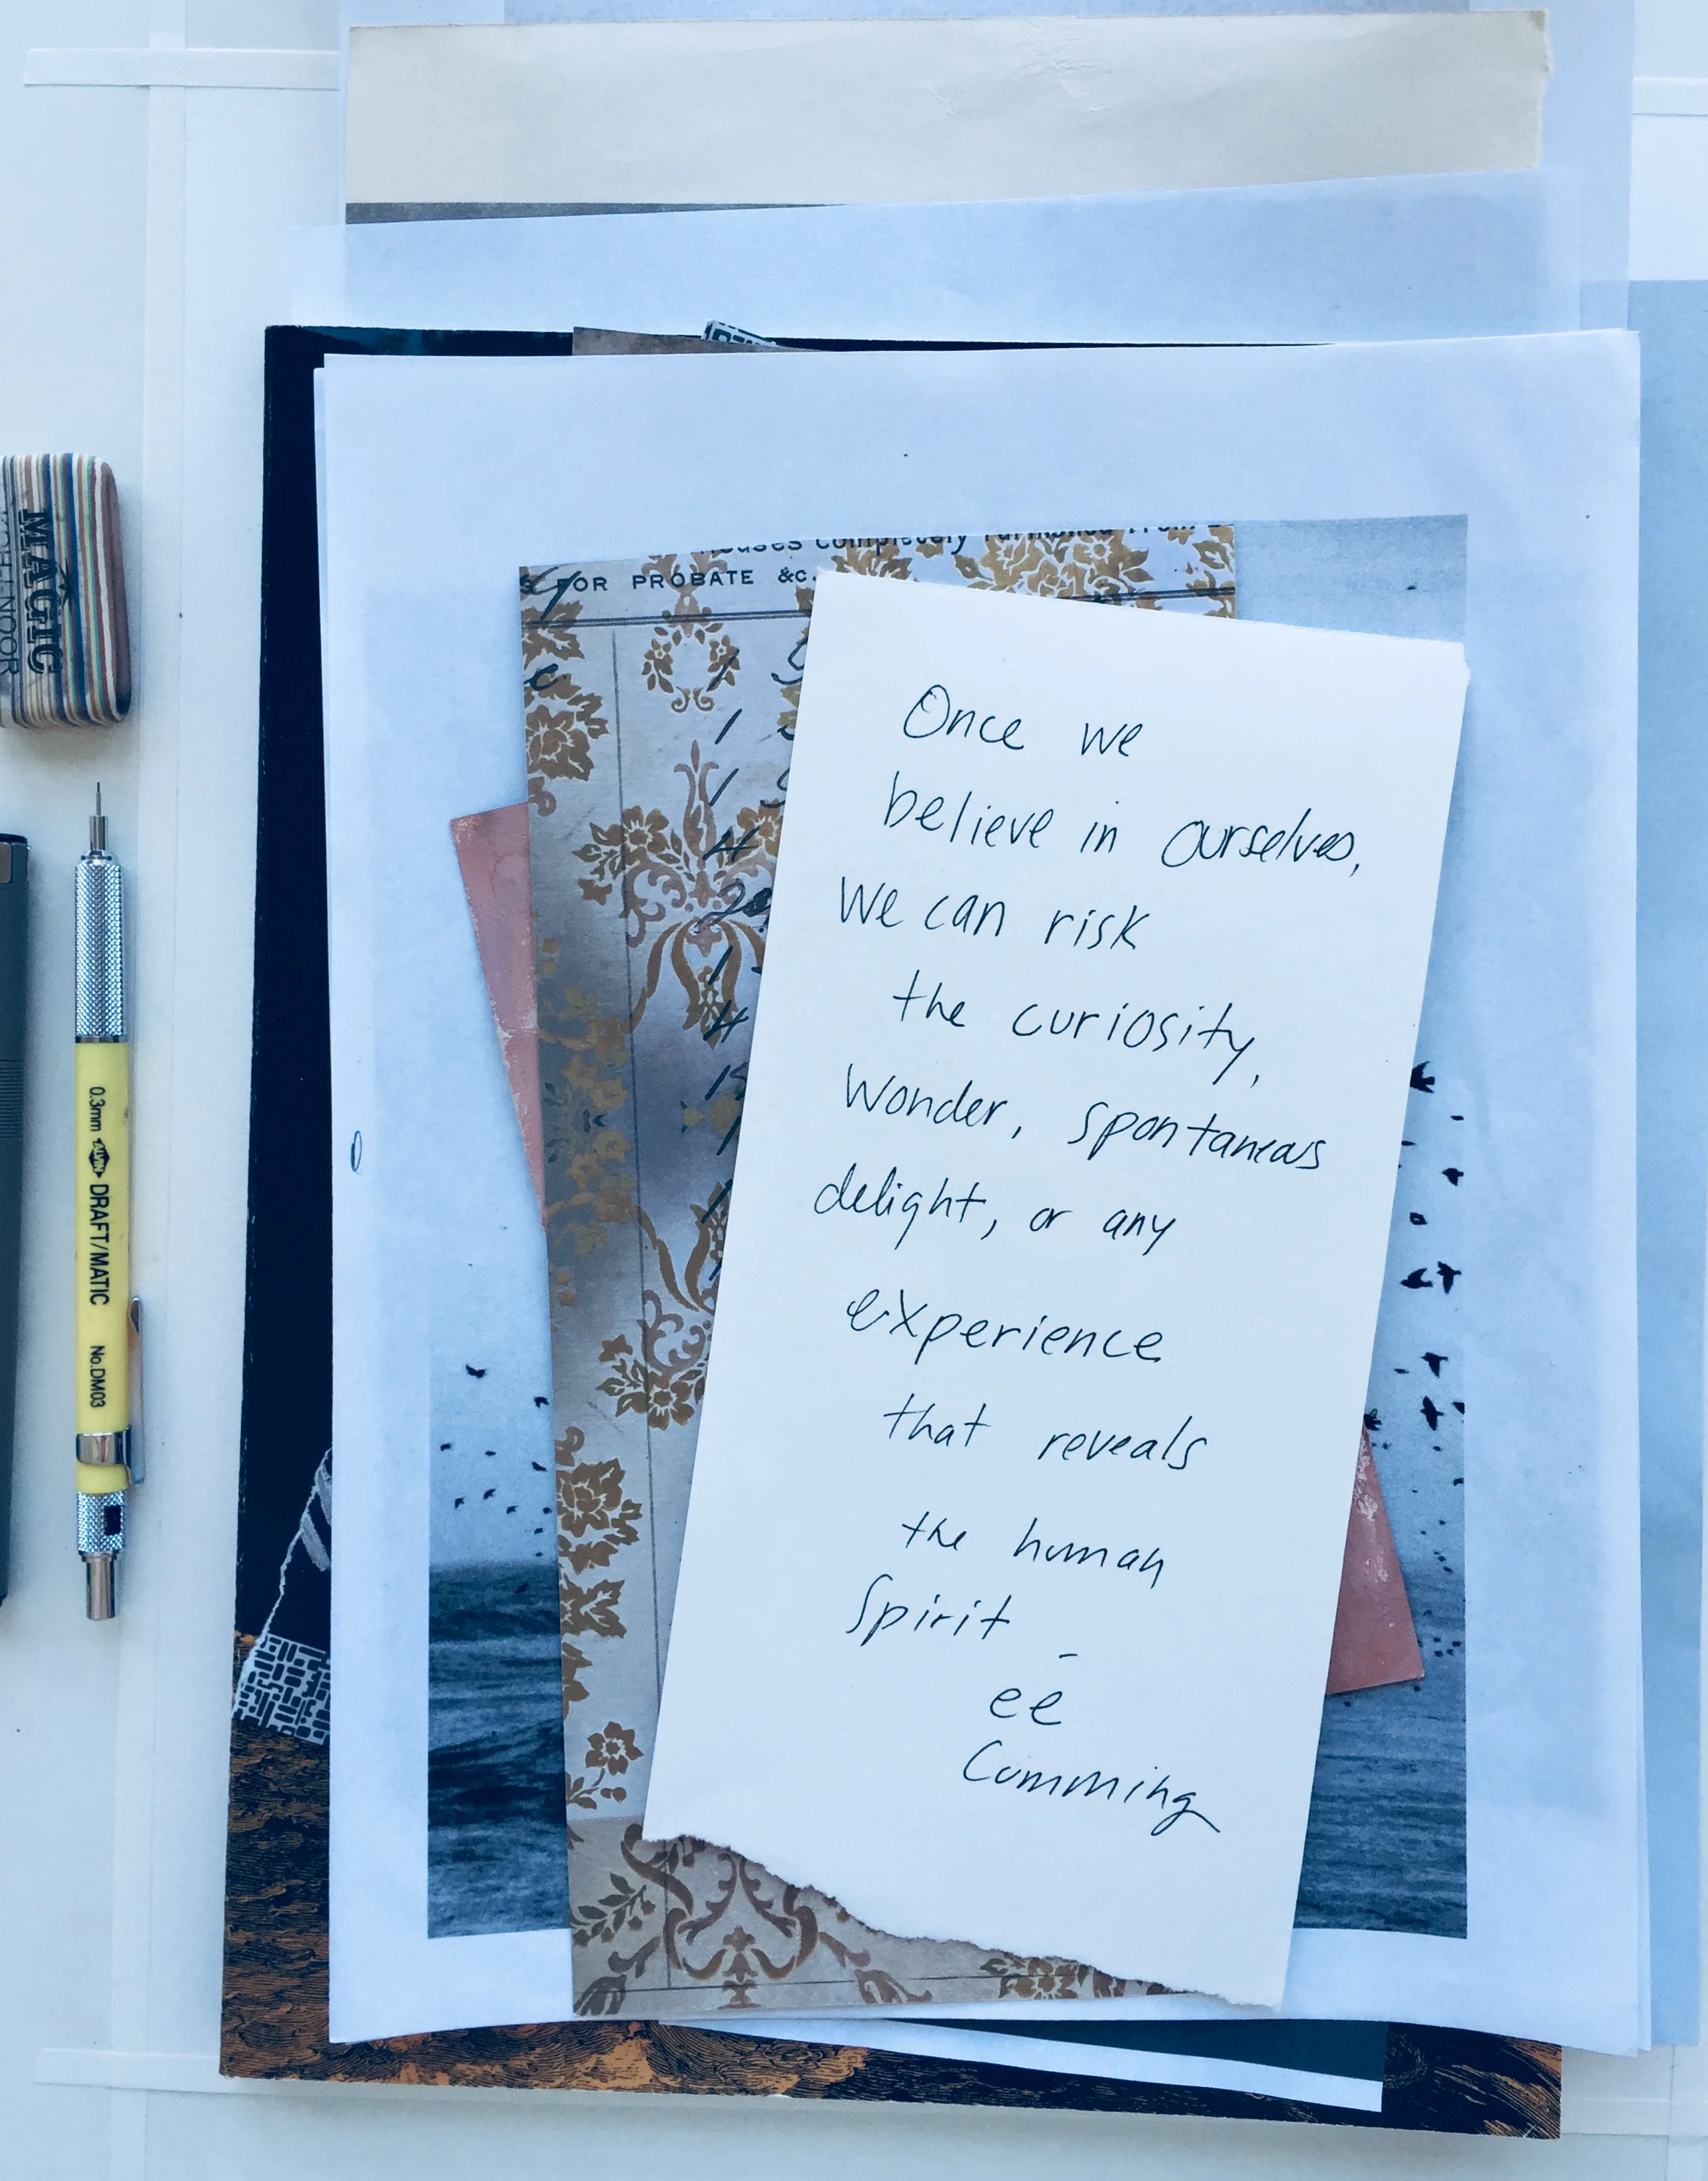 MAGIC
KOH-I-NOOR
0.3mm ALVIN DRAFT/MATIC No.DM03
Houses completely furnished from
S FOR PROBATE &c.
Once we
believe in ourselves,
we can risk
the curiosity,
wonder, spontaneous
delight, or any
experience
that reveals
the human
spirit -
ee
Cumming